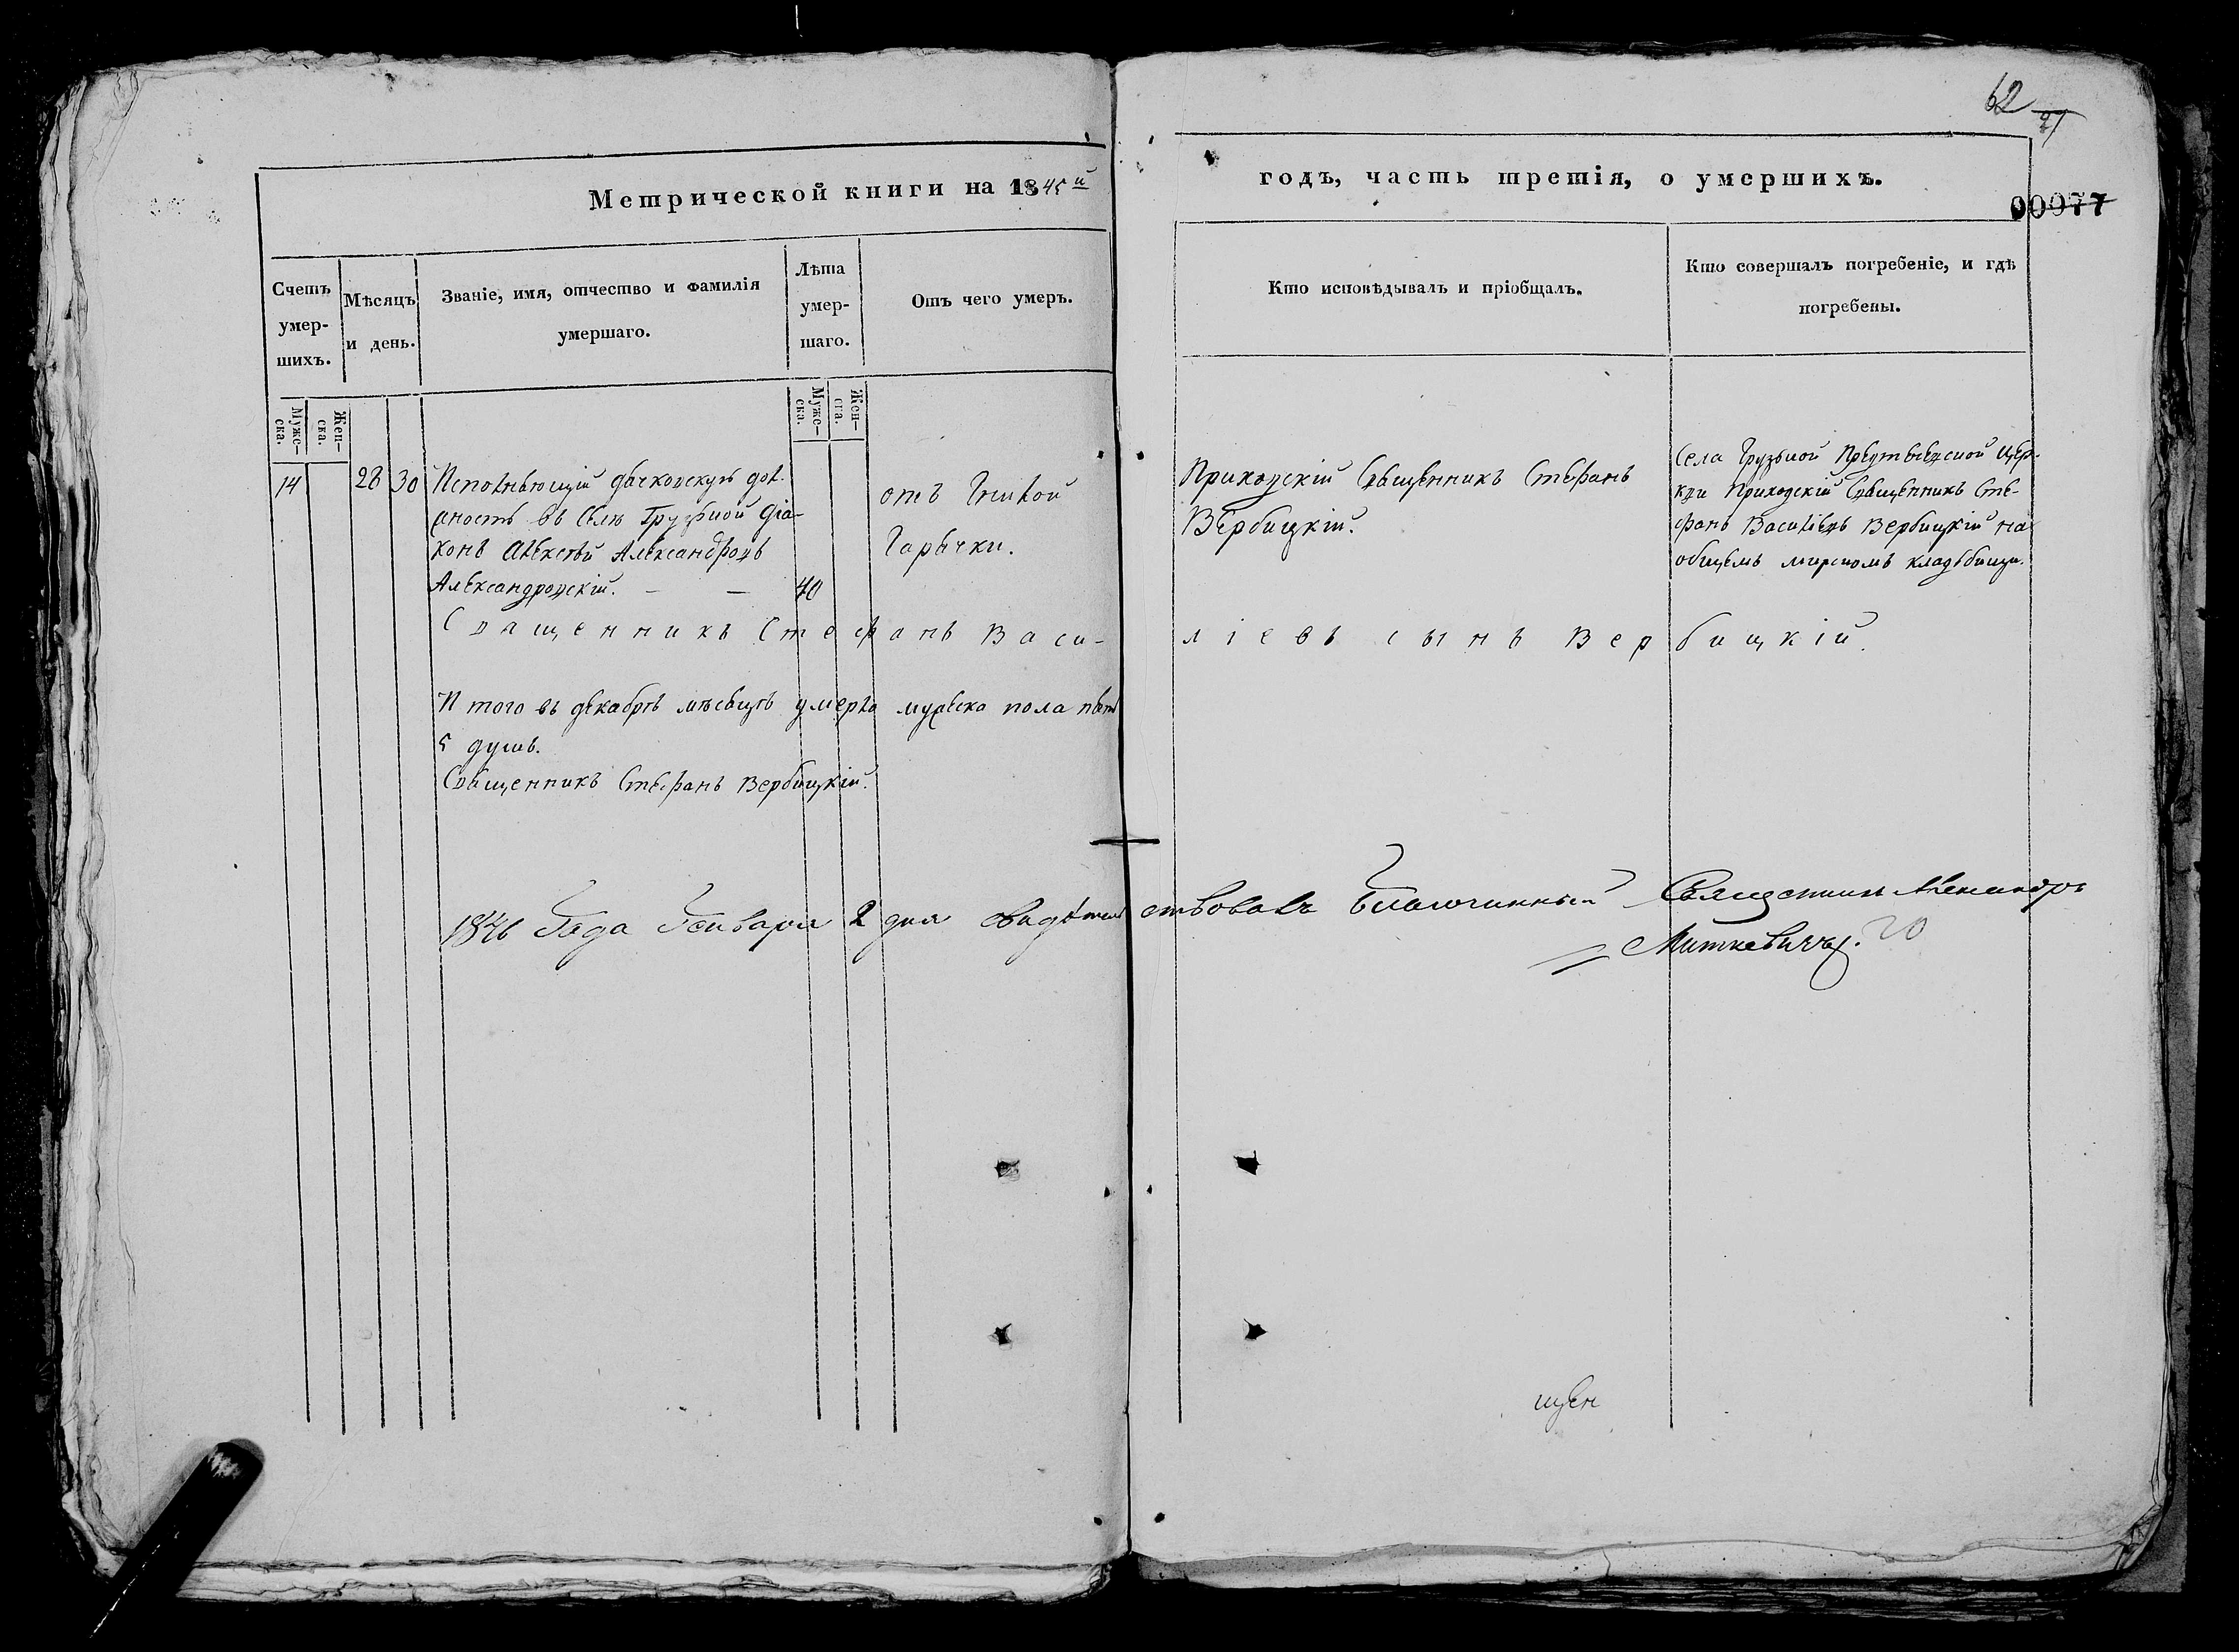 62
21
Метрической книги на 1845й
годъ, часть третія, о умершихъ.
00077
Счетъ умер-шихъ.
Мѣсяцъ и день.
Званіе, имя, отчество и фамилія умершаго.
Лѣта умер-шаго.
Отъ чего умеръ.
Кто исповѣдывалъ и пріобщалъ.
Кто совершалъ погребеніе, и гдѣ погребены.
Муже-ска.
Жен-ска.
Муже-ска.
Жен-ска.
14
28
30
Исполняющій дячковскую дол-
жность въ селѣ Грузкой діа-
конъ Алексѣй Александровъ
Александровскій. — —
40
отъ Гнилой
Гарячки.
Приходскій Священникъ Стефанъ
Вербицкій.
Села Грузкой Пречистенской Цер-
кви Приходскій Священникъ Сте-
фанъ Василіевъ Вербицкій на
общемъ мирскомъ кладбищи.
Священникъ Стефанъ Васи-
ліевъ сынъ Вербицкій.
И того въ декабрѣ мѣсяцѣ умерло мужска пола пять
5 душъ.
Священникъ Стефанъ Вербицкій.
1846 Года Генваря 2 дня свидѣтельствовалъ Благочинный Священникъ Александръ
Миткевичъ.
20
щен